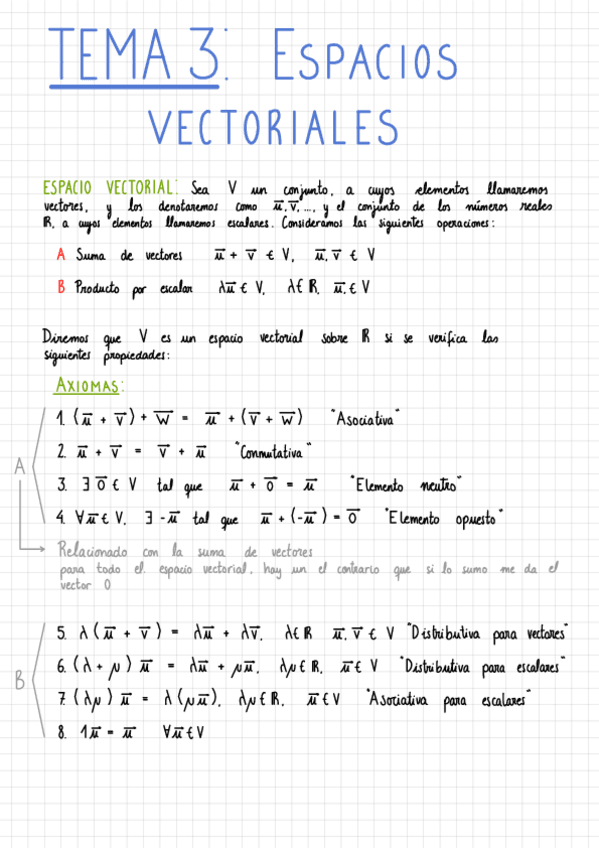 TEMA 3: ESPACIOS
VECTORIALES
ESPACIO VECTORIAL: Sea V un conjunto, a cuyos elementos llamaremos
vectores, y los denotaremos como u⃗, v⃗, ..., y el conjunto de los números reales
ℝ, a cuyos elementos llamaremos escalares. Consideramos las siguientes operaciones:
A Suma de vectores u⃗ + v⃗ ∈ V, u⃗, v⃗ ∈ V
B Producto por escalar λu⃗ ∈ V, λ ∈ ℝ, u⃗, ∈ V
Diremos que V es un espacio vectorial sobre ℝ si se verifica las
siguientes propiedades:
AXIOMAS:
A
1. (u⃗ + v⃗) + w⃗ = u⃗ + (v⃗ + w⃗) "Asociativa"
2. u⃗ + v⃗ = v⃗ + u⃗ "Conmutativa"
3. ∃ 0⃗ ∈ V tal que u⃗ + 0⃗ = u⃗ "Elemento neutro"
4. ∀u⃗ ∈ V, ∃ -u⃗ tal que u⃗ + (-u⃗) = 0⃗ "Elemento opuesto"
Relacionado con la suma de vectores
para todo el espacio vectorial, hay un el contrario que si lo sumo me da el
vector 0
B
5. λ(u⃗ + v⃗) = λu⃗ + λv⃗, λ ∈ ℝ u⃗, v⃗ ∈ V "Distributiva para vectores"
6. (λ + μ) u⃗ = λu⃗ + μu⃗, λμ ∈ ℝ, u⃗ ∈ V "Distributiva para escalares"
7. (λμ) u⃗ = λ(μu⃗), λμ ∈ ℝ, u⃗ ∈ V "Asociativa para escalares"
8. 1u⃗ = u⃗ ∀u⃗ ∈ V